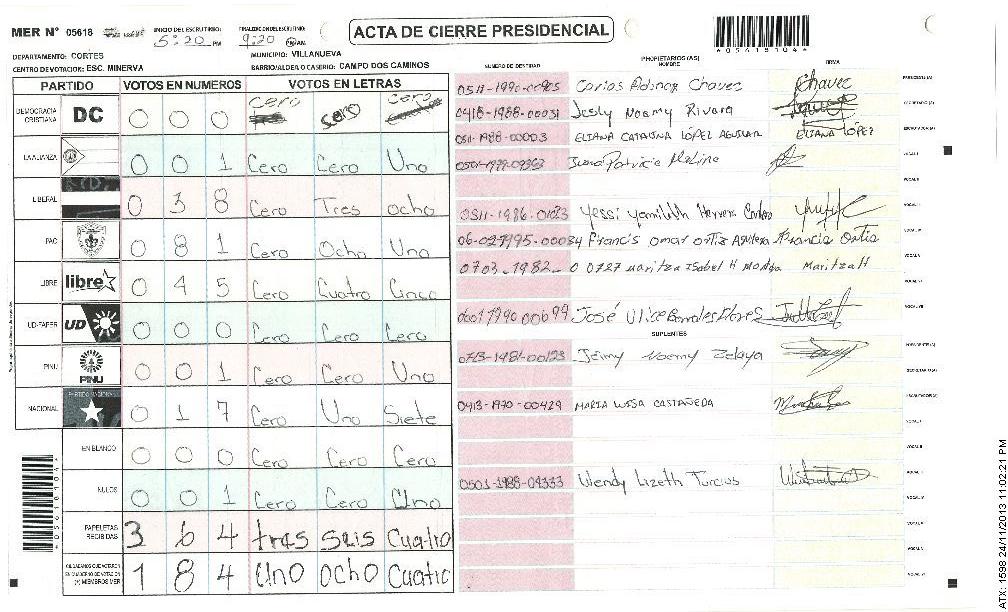 MER N° 05618
INICIO DEL ESCRUTINIO: 5:20 PM
FINALIZACION DEL ESCRUTINIO: 9:20 PM
ACTA DE CIERRE PRESIDENCIAL
*05618104*
DEPARTAMENTO: CORTES
MUNICIPIO: VILLANUEVA
CENTRO DE VOTACION: ESC. MINERVA
BARRIO/ALDEA O CASERIO: CAMPO DOS CAMINOS
PARTIDO VOTOS EN NUMEROS VOTOS EN LETRAS
DEMOCRACIA CRISTIANA DC 0 0 0 Cero Cero Cero
LA ALIANZA 0 0 1 Cero Cero Uno
LIBERAL 0 3 8 Cero Tres ocho
PAC 0 8 1 Cero Ocho Uno
LIBRE libre 0 4 5 Cero Cuatro Cinco
UD-FAPER UD 0 0 0 Cero Cero Cero
PINU PINU 0 0 1 Cero Cero Uno
NACIONAL PARTIDO NACIONAL 0 1 7 Cero Uno Siete
EN BLANCO 0 0 0 Cero Cero Cero
NULOS 0 0 1 Cero Cero Uno
PAPELETAS RECIBIDAS 3 6 4 tres seis Cuatro
CIUDADANOS QUE VOTARON EN CUADERNO DE VOTACION (+) MIEMBROS MER 1 8 4 Uno ocho Cuatro
NUMERO DE IDENTIDAD PROPIETARIOS (AS) NOMBRE FIRMA
Chavez PRESIDENTE (A)
0418-1988-00031 Josly Noemy Rivera SECRETARIO (A)
0511-1988-00003 ELIANA CATALINA LÓPEZ AGUILAR ELIANA LÓPEZ ESCRUTADOR (A)
Patricia Molina VOCAL I
VOCAL II
Yessi Yamilith Herrera VOCAL III
Francis Omar Ortiz Aguilera Francis Ortiz VOCAL IV
0703-1982-00727 Maritza Isabel H Maritza H VOCAL V
VOCAL VI
José VOCAL VII
SUPLENTES
0713-1981-00123 Jenny Noemy Zelaya PRESIDENTE (A)
SECRETARIO (A)
0413-1970-00429 MARIA LUISA CASTAÑEDA ESCRUTADOR (A)
VOCAL I
VOCAL II
0501-1988-09333 Wendy Lizeth Turcios VOCAL III
VOCAL IV
VOCAL V
VOCAL VI
*05618104*
ATX: 1598 24/11/2013 11:02:21 PM